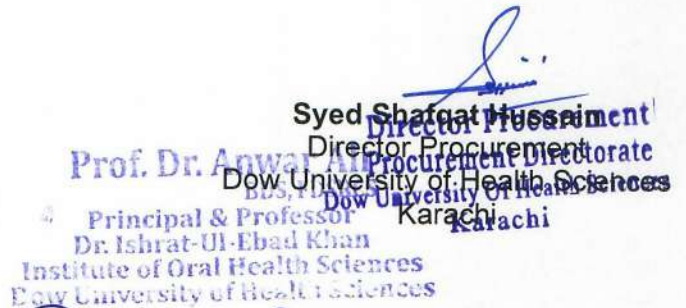 Syed Shafqat Hussain
Director Procurement
Dow University of Health Sciences
Karachi
Director Procurement
Procurement Directorate
Dow University Of Health Sciences
Karachi
Prof. Dr. Anwar Ali
BDS,
Principal & Professor
Dr. Ishrat-Ul-Ebad Khan
Institute of Oral Health Sciences
Dow University of Health Sciences